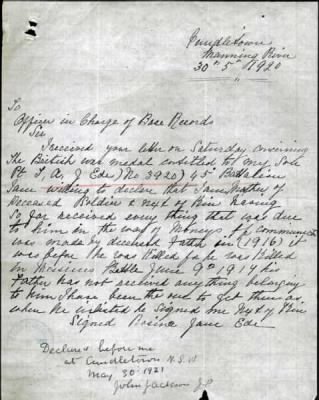 Cundletown
Manning River
30th 5th 1920
To
Officer in Charge of Base Records
Sir
I received your letter on Saturday concerning
the British war medal entitled to my Son
Pt T. A. J Ede) No 3920) 45th Battalion
I am willing to declare that I am Mother of
Deceased Soldier & next of Kin having
So far received everything that was due
to him in the way of Money.
was made by deceased Father in (1916) it
was before he was Killed for he was Killed
in Messines Battle June 9th 1917 his
Father has not received anything belonging
to him I have been the one to get them as
when he enlisted he Signed me Next of Kin
Signed Rosina Jane Ede
Declared before me
at Cundletown N.S.W
May 30 1921
John Jackson J.P